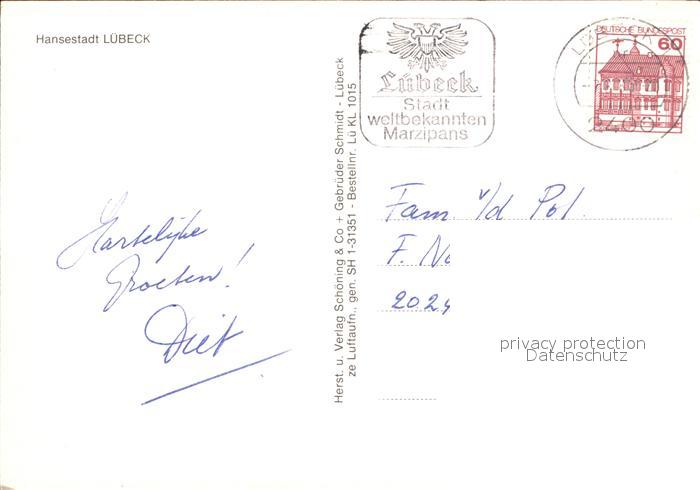 Hansestadt LÜBECK
Lübeck
Stadt
weltbekannten
Marzipans
DEUTSCHE BUNDESPOST
60
2400
Herst. u. Verlag Schöning & Co + Gebrüder Schmidt - Lübeck
ze Luftaufn., gen. SH 1-31351 - Bestellnr. Lü KL 1015
Hartelijke
Groeten!
Diet
Fam. v/d Pol.
F. No
2024
privacy protection
Datenschutz